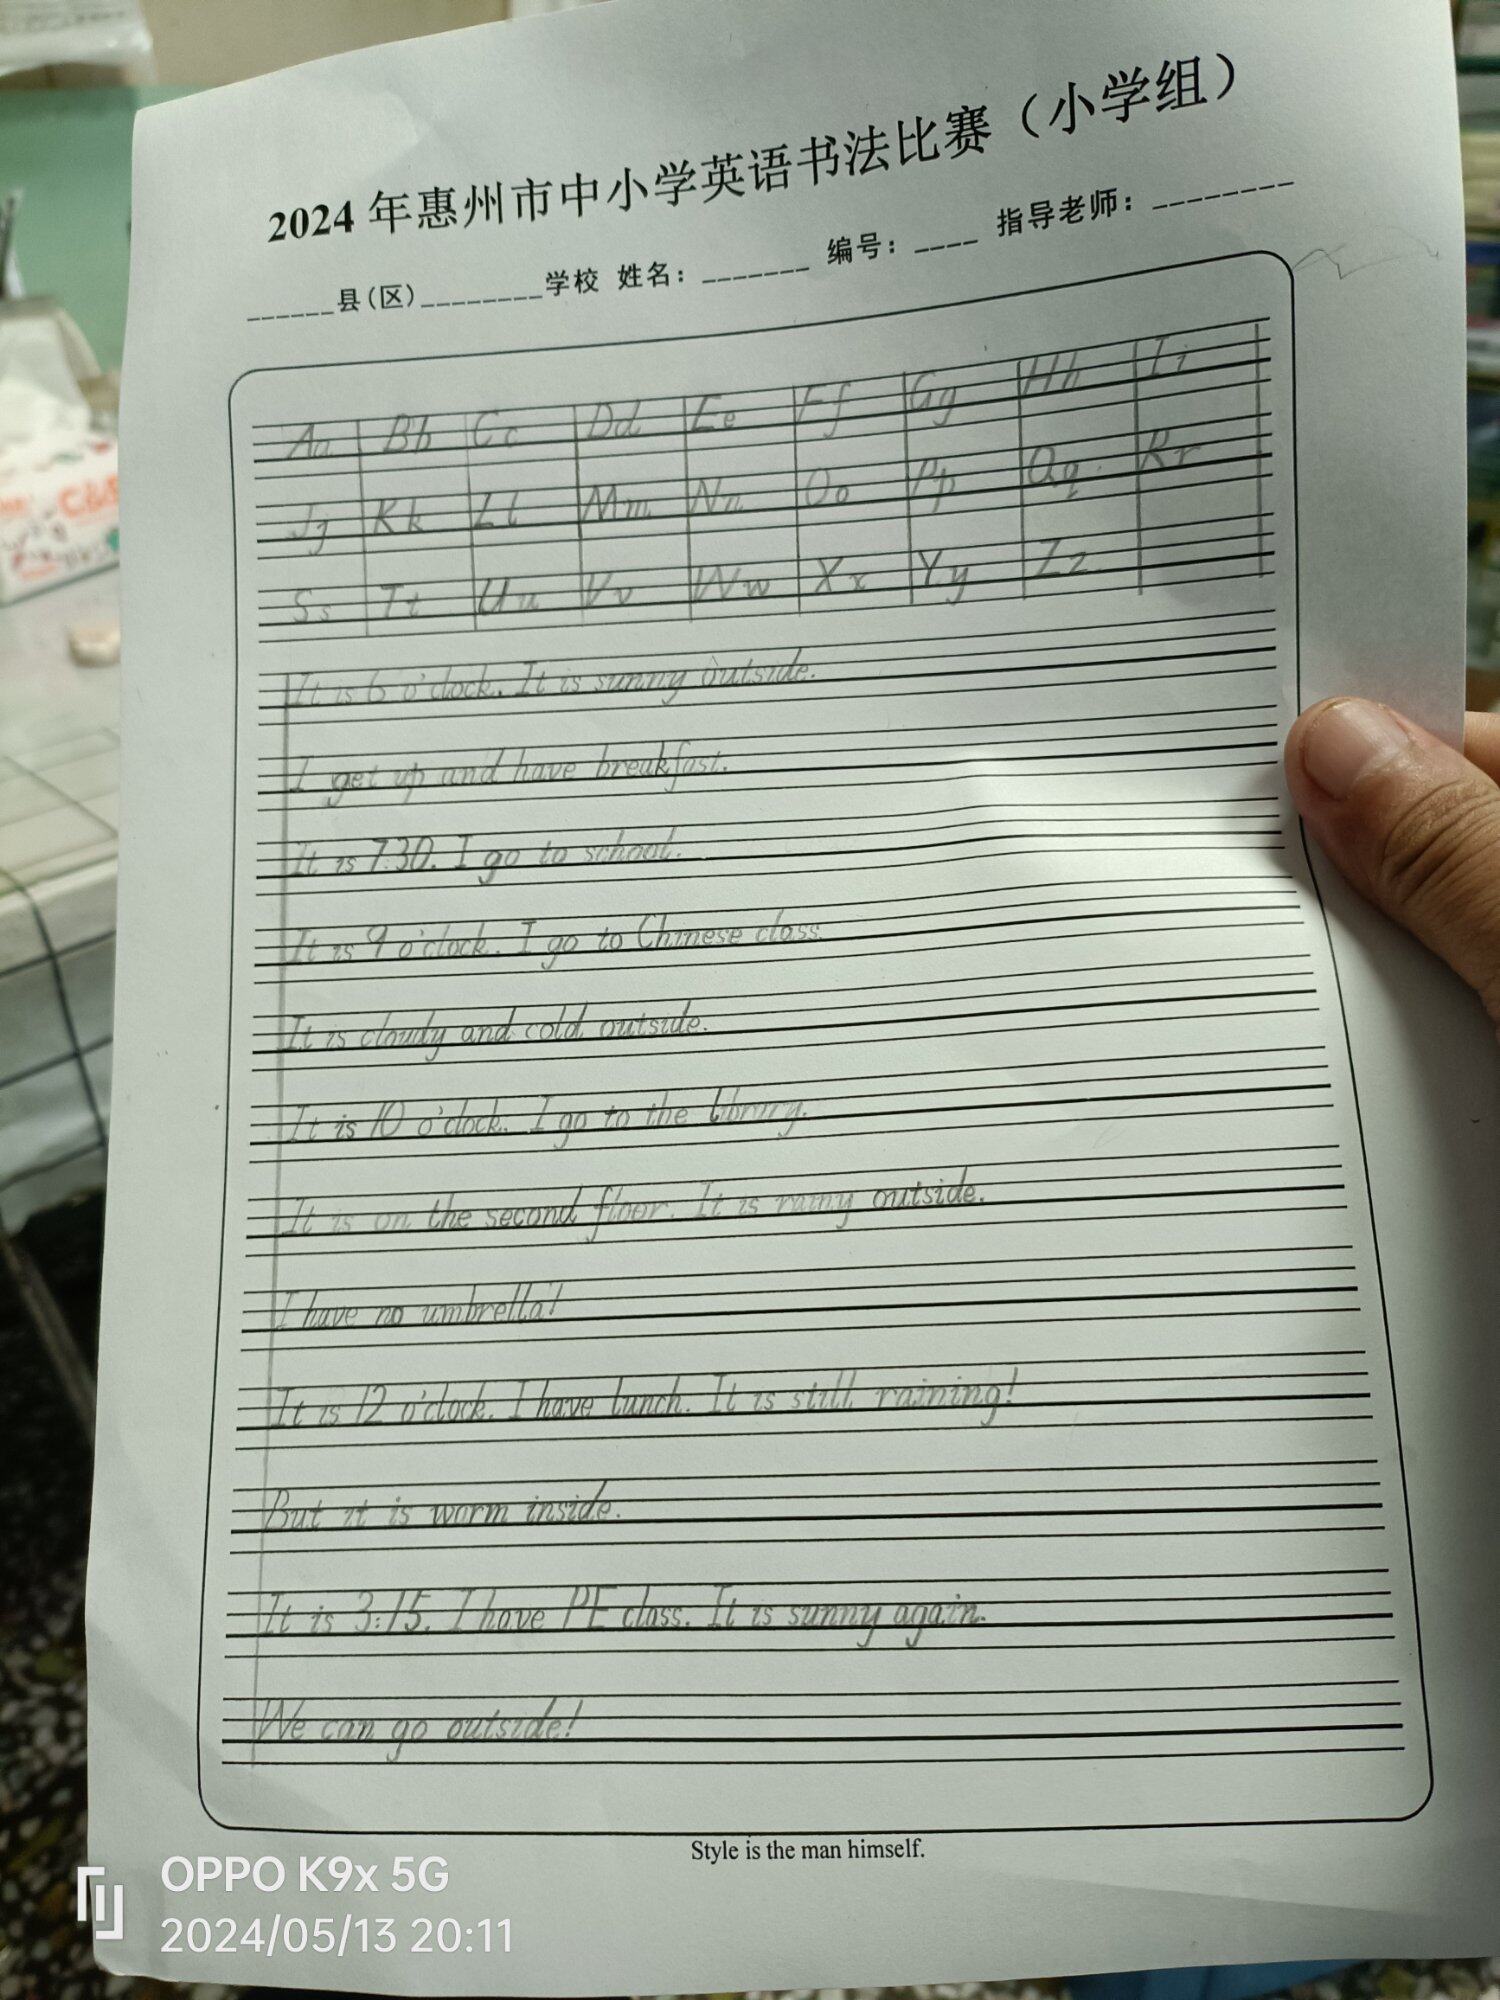 2024 年惠州市中小学英语书法比赛（小学组）
______县(区)________学校 姓名：_______ 编号：____ 指导老师：________
Aa Bb Cc Dd Ee Ff Gg Hh Ii
Jj Kk Ll Mm Nn Oo Pp Qq Rr
Ss Tt Uu Vv Ww Xx Yy Zz
It is 6 o'clock. It is sunny outside.
I get up and have breakfast.
It is 7:30. I go to school.
It is 9 o'clock. I go to Chinese class.
It is cloudy and cold outside.
It is 10 o'clock. I go to the library.
It is on the second floor. It is rainy outside.
I have no umbrella!
It is 12 o'clock. I have lunch. It is still raining!
But it is warm inside.
It is 3:15. I have PE class. It is sunny again.
We can go outside!
Style is the man himself.
OPPO K9x 5G
2024/05/13 20:11